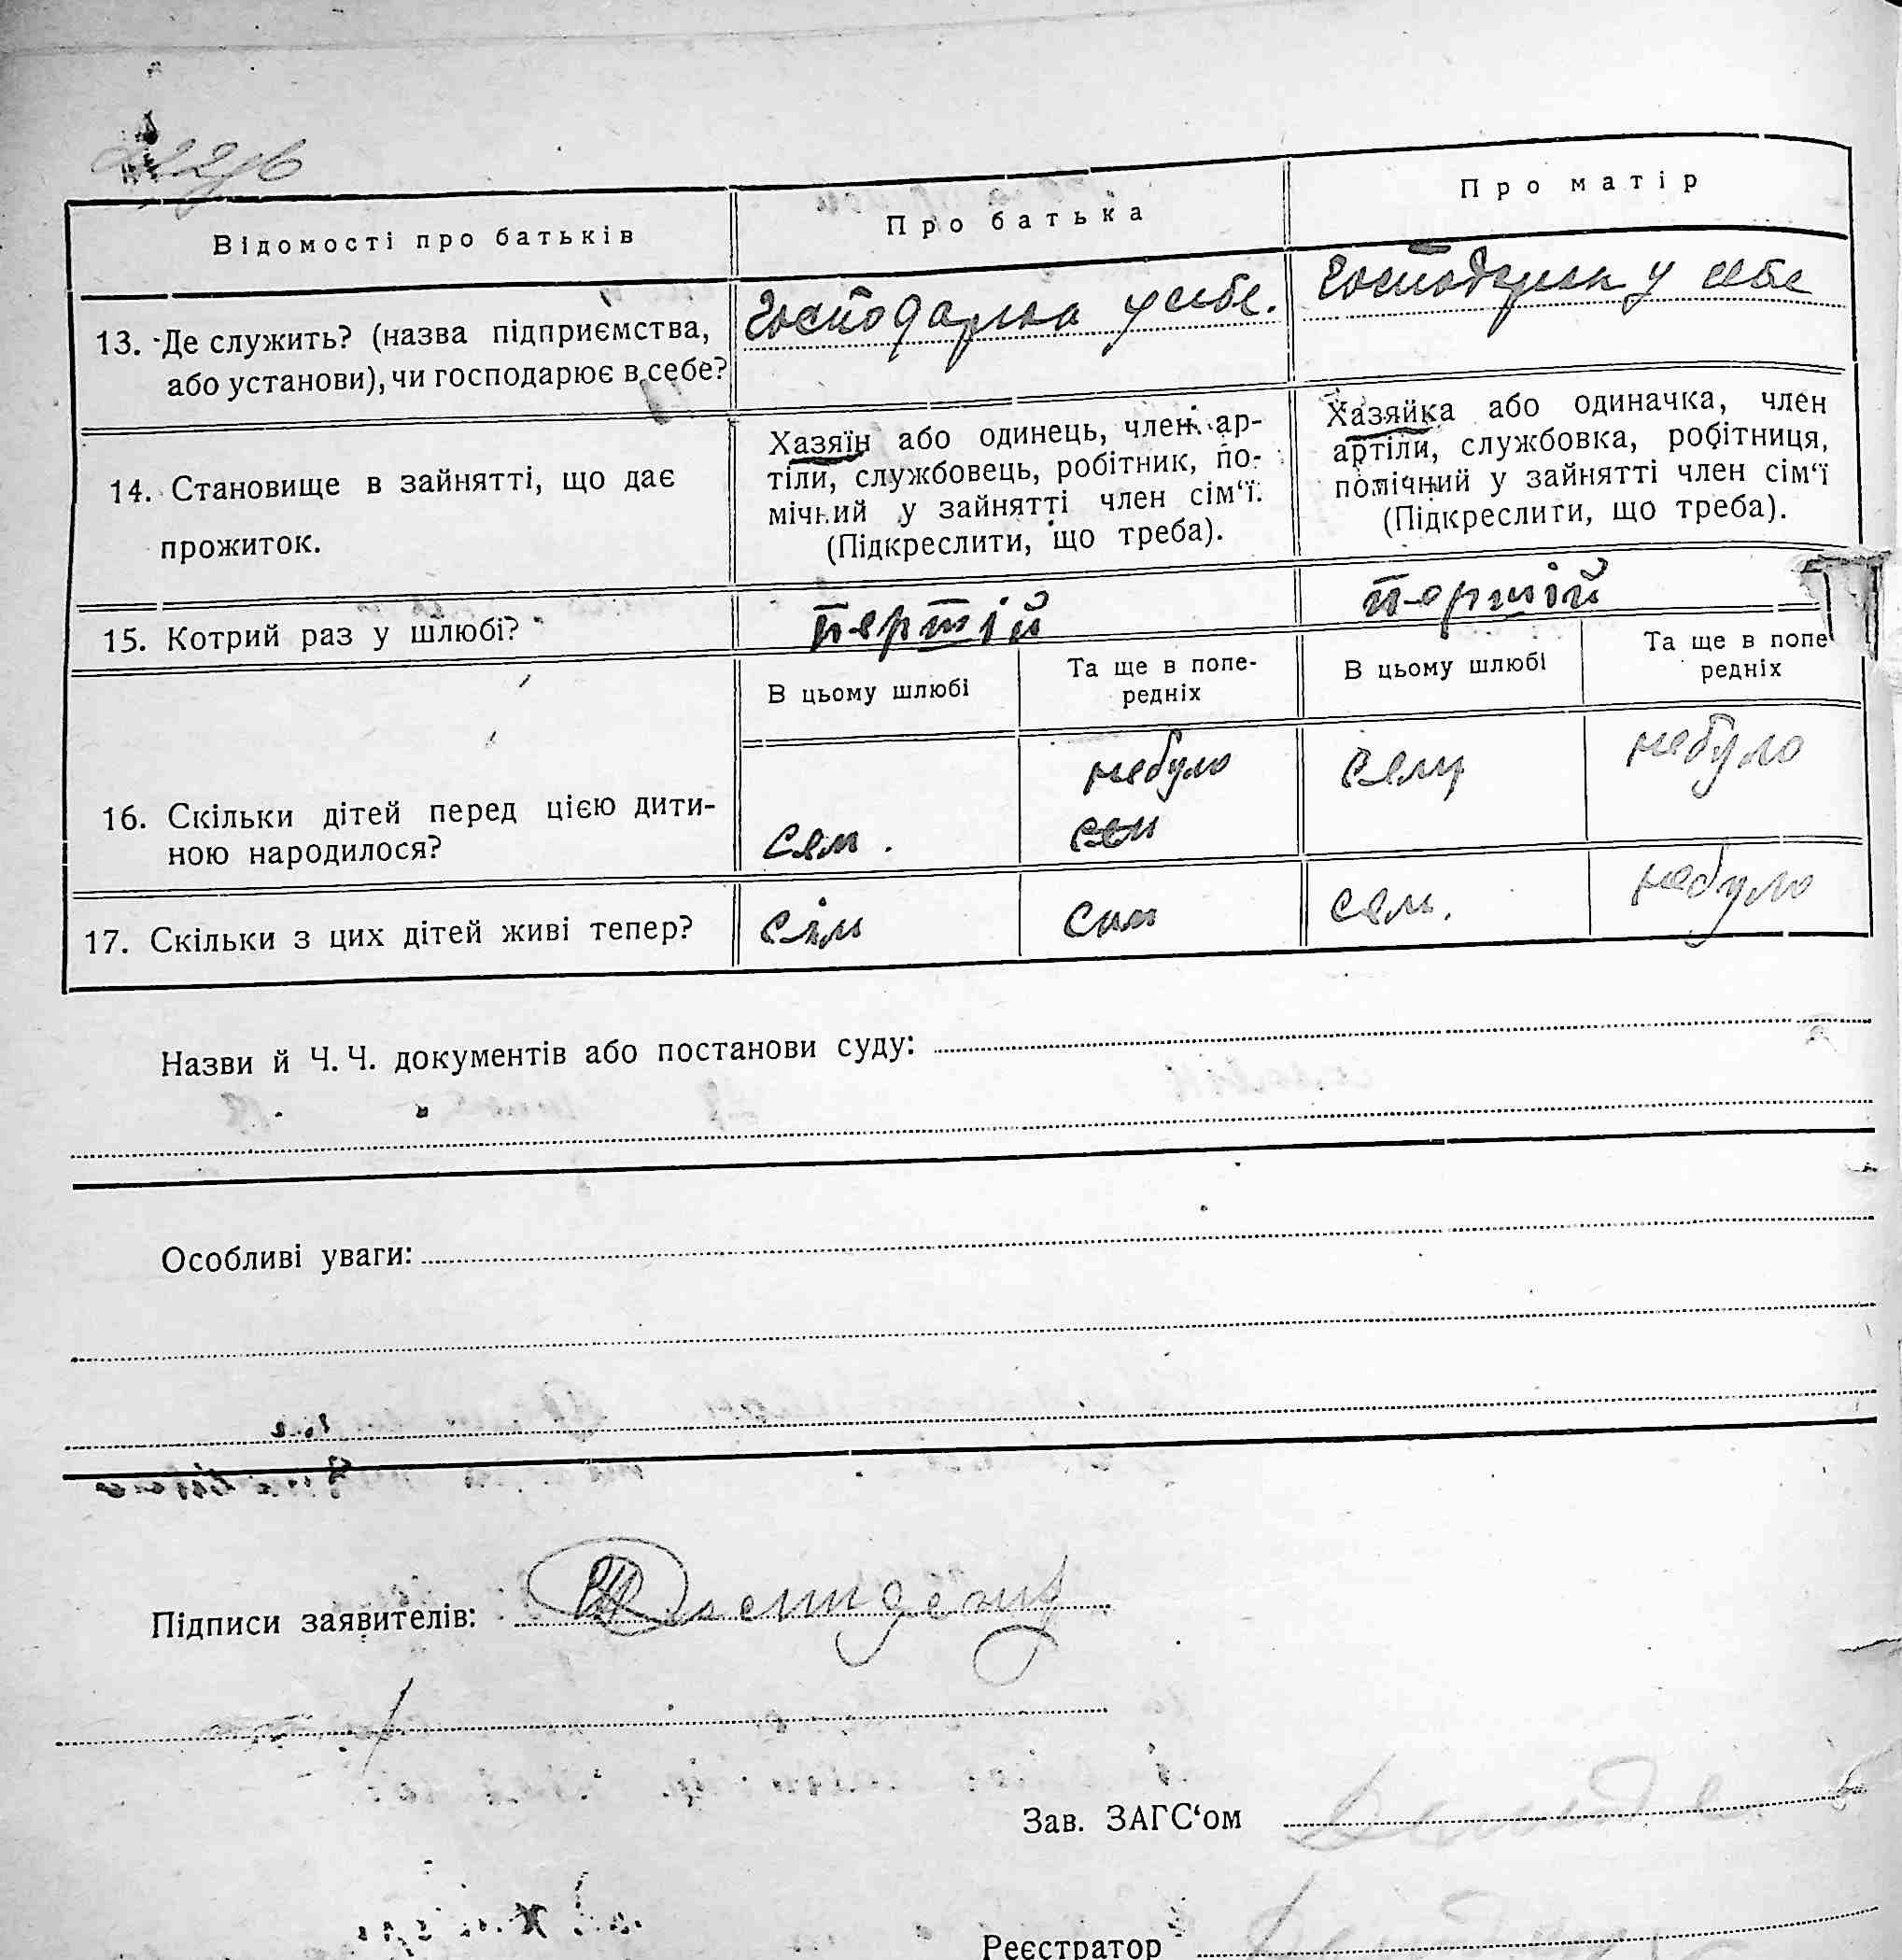 Відомості про батьків
Про батька
Про матір
13. Де служить? (назва підприємства,
або установи), чи господарює в себе?
господарка у себе.
господарка у себе
14. Становище в зайнятті, що дає
прожиток.
Хазяїн або одинець, член ар-
тіли, службовець, робітник, по-
мічний у зайнятті член сім‘ї.
(Підкреслити, що треба).
Хазяйка або одиначка, член
артіли, службовка, робітниця,
помічний у зайнятті член сім‘ї
(Підкреслити, що треба).
15. Котрий раз у шлюбі?
першій
першій
В цьому шлюбі
Та ще в попе-
редніх
В цьому шлюбі
Та ще в попе
редніх
16. Скільки дітей перед цією дити-
ною народилося?
сем.
небуло
сем
небуло
17. Скільки з цих дітей живі тепер?
сім
сем.
небуло
Назви й Ч. Ч. документів або постанови суду:
Особливі уваги:
Підписи заявителів:
Зав. ЗАГС‘ом
Реєстратор